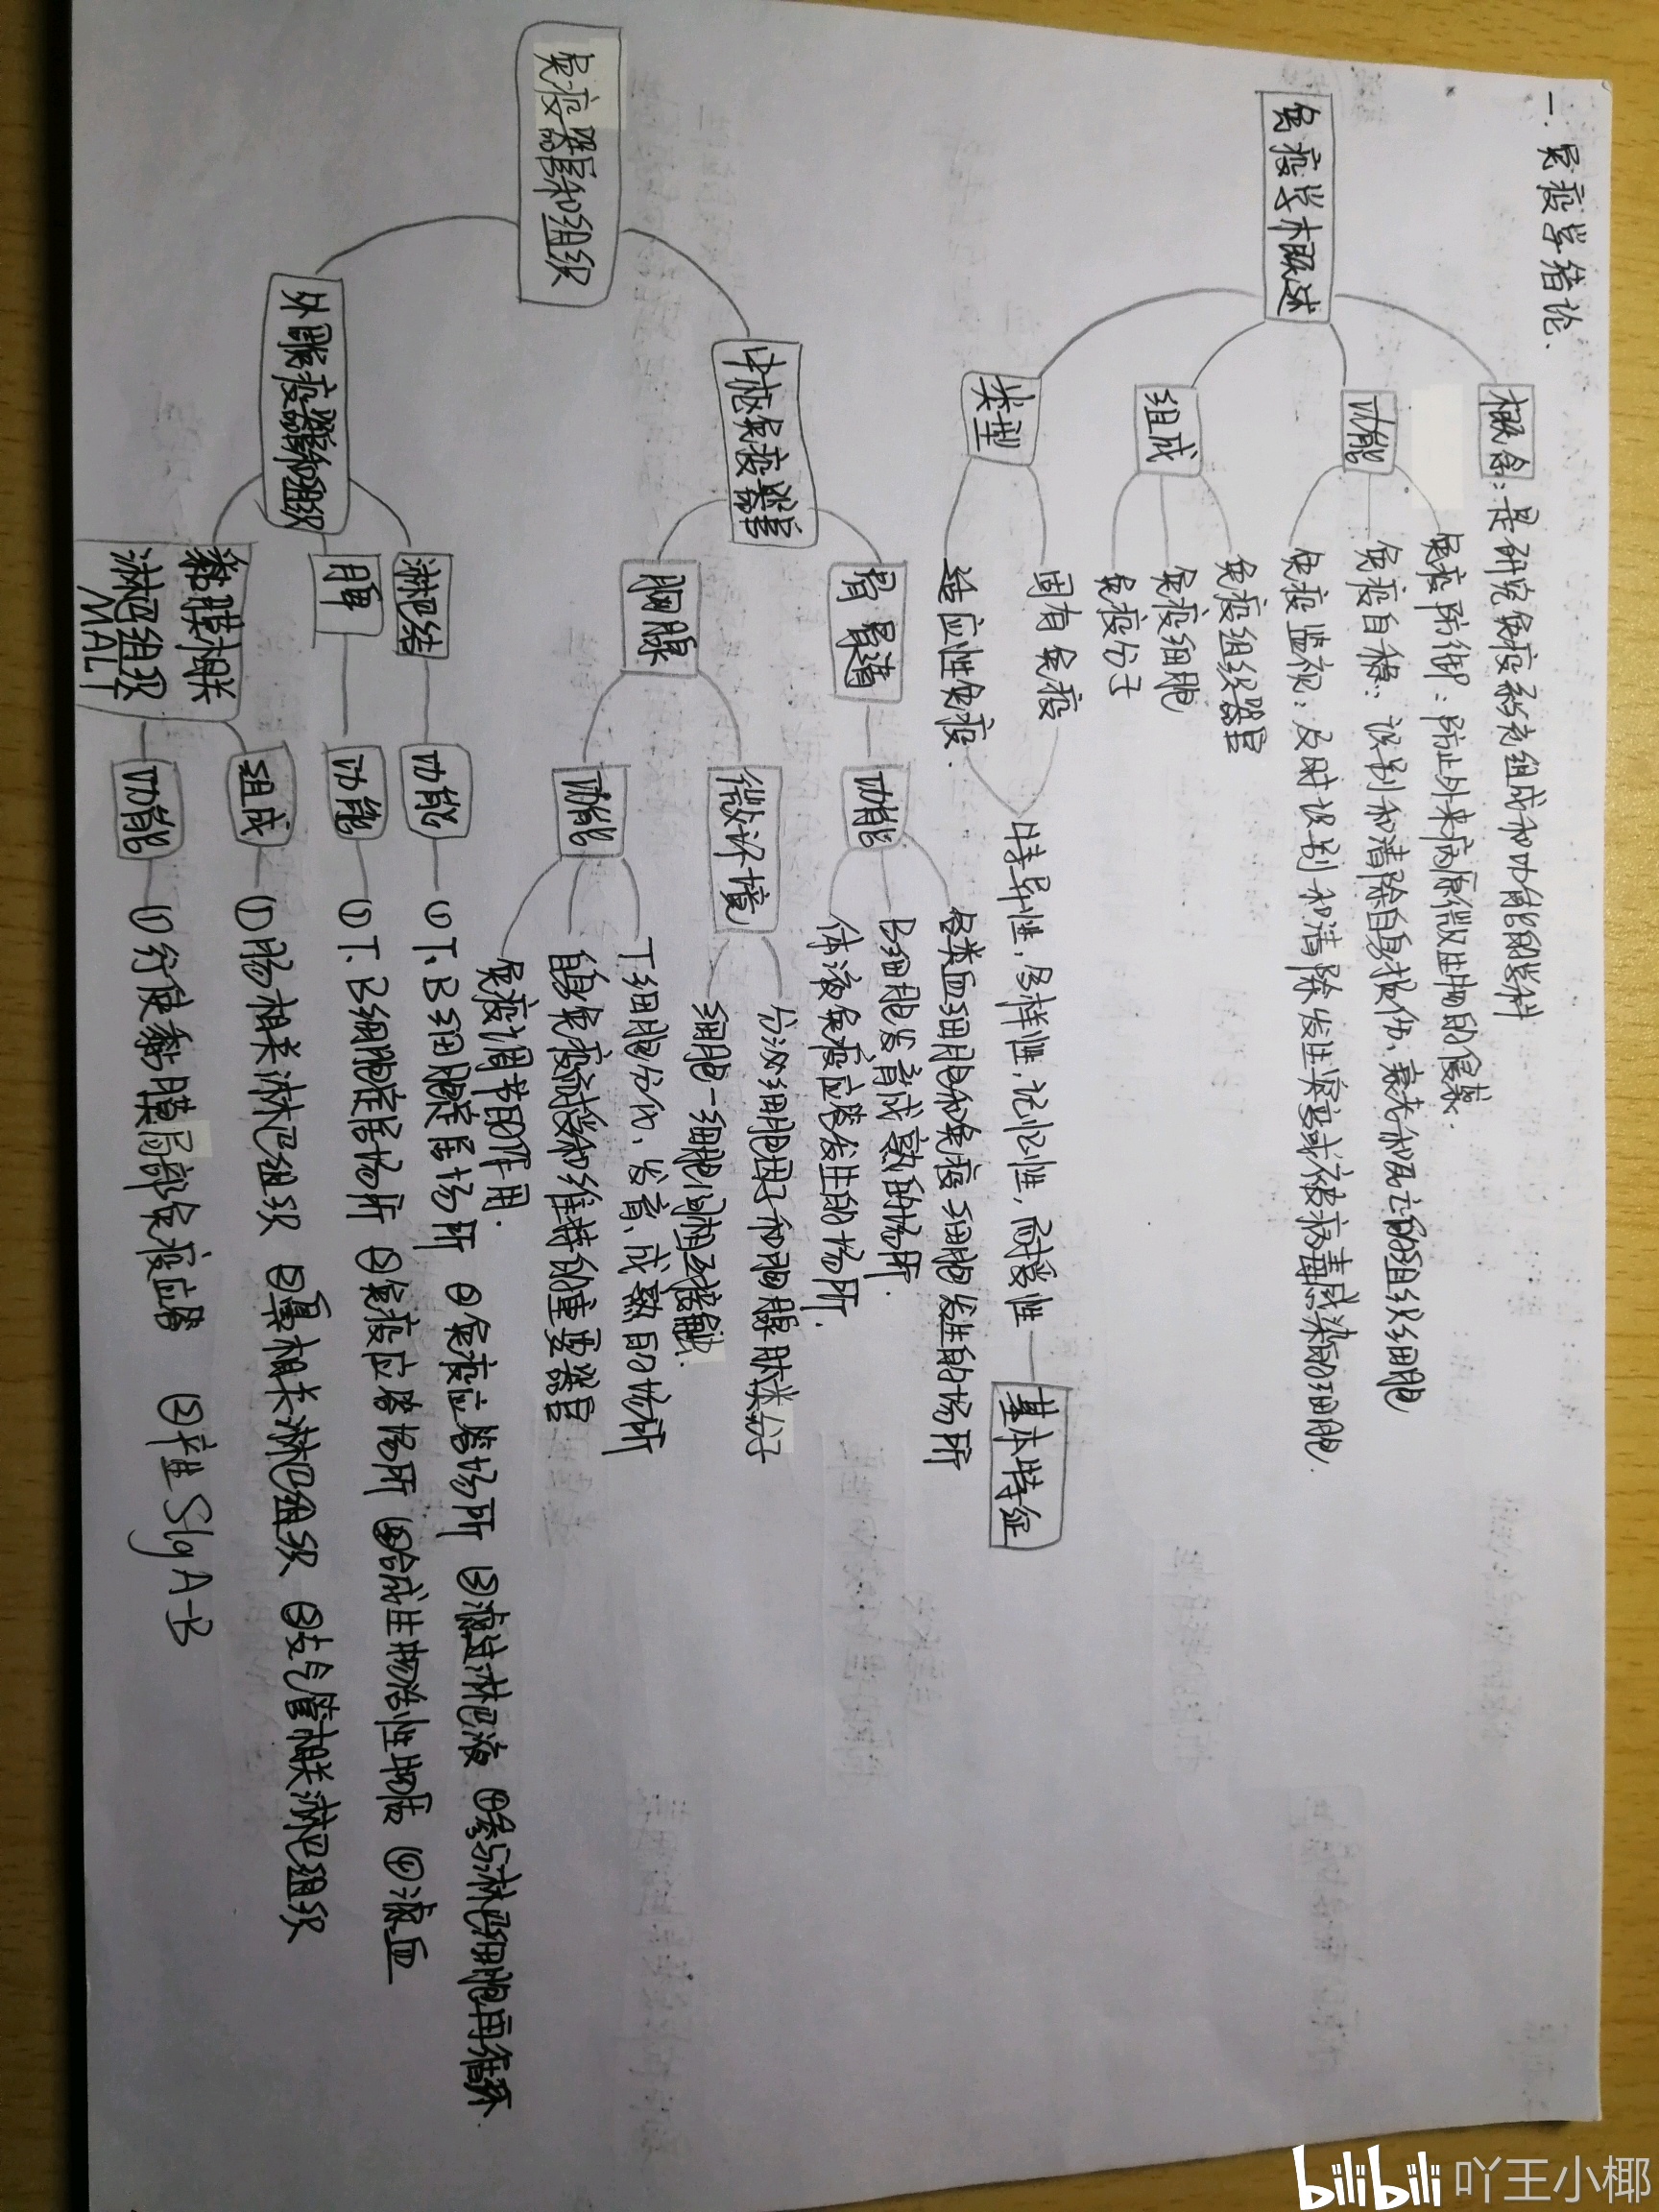 一. 免疫学绪论.
免疫学概述
概念：是研究免疫系统组成和功能的学科
功能
免疫防御：防止外来病原微生物的侵袭.
免疫自稳：识别和清除自身损伤、衰老和死亡的组织细胞
免疫监视：及时识别和清除发生突变或被病毒感染的细胞.
组成
免疫组织器官
免疫细胞
免疫分子
类型
固有免疫
适应性免疫.
特异性,多样性,记忆性,耐受性
基本特征
免疫器官和组织
中枢免疫器官
骨髓
功能
各类血细胞和免疫细胞发生的场所
B细胞发育成熟的场所.
体液免疫应答发生的场所.
胸腺
微环境
分泌细胞因子和胸腺肽类分子
细胞-细胞间相互接触.
功能
T细胞分化、发育、成熟的场所
自身免疫耐受和维持的重要器官
免疫调节的作用.
外周免疫器官和组织
淋巴结
功能
①T、B细胞定居场所 ②免疫应答场所 ③滤过淋巴液 ④参与淋巴细胞再循环.
脾
功能
①T、B细胞定居场所 ②免疫应答场所 ③合成生物活性物质 ④滤血
黏膜相关
淋巴组织
MALT
组成
①肠相关淋巴组织 ②鼻相关淋巴组织 ③支气管相关淋巴组织
功能
①行使黏膜局部免疫应答 ②产生SIgA-B
bilibili 吖王小椰